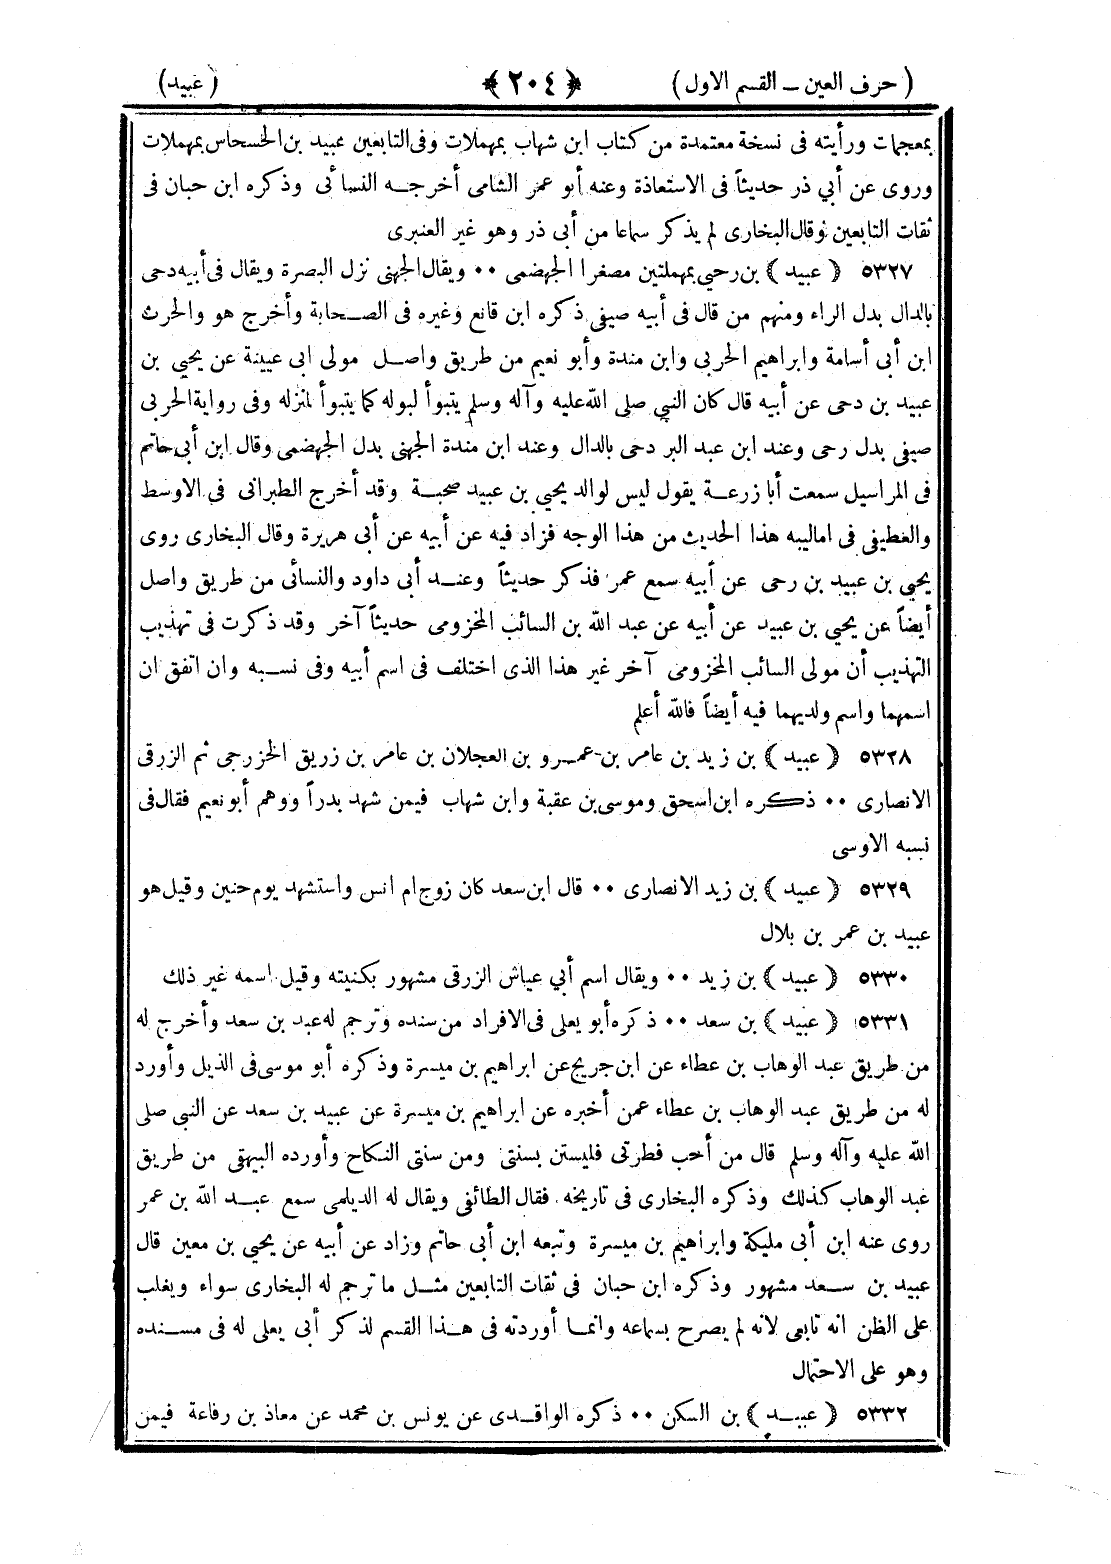 ( حرف العين ــ القسم الاول ) ﴿ ٢٠٤ ﴾ ( عبيد )
بمعجمات ورأيته فى نسخة معتمدة من كتاب ابن شهاب بمهملات وفى التابعين عبيد بن الخسحاس بمهملات
وروى عن أبي ذر حديثاً فى الاستعاذة وعنه أبو عمر الشامى أخرجـه النسائى وذكره ابن حبان فى
ثقات التابعين وقال البخارى لم يذكر سماعا من أبى ذر وهو غير العنبرى
٥٣٢٧ ( عبيد ) بن رحي بمهملتين مصغرا الجهضمى ٠٠ ويقال الجهنى نزل البصرة ويقال فى أبيه دحى
بالدال بدل الراء ومنهم من قال فى أبيه صيفى ذكره ابن قانع وغيره فى الصـحابة وأخرج هو والحرث
ابن أبى أسامة وابراهيم الحربى وابن مندة وأبو نعيم من طريق واصـل مولى ابى عيينة عن يحيى بن
عبيد بن دحى عن أبيه قال كان النبي صلى الله عليه وآله وسلم يتبوأ لبوله كما يتبوأ لمنزله وفى رواية الحربى
صيفى بدل رحى وعند ابن عبد البر دحى بالدال وعند ابن مندة الجهنى بدل الجهضمى وقال ابن أبى حاتم
فى المراسيل سمعت أبا زرعـة يقول ليس لوالد يحيى بن عبيد صحبـة وقد أخرج الطبرانى فى الاوسط
والغطيفى فى اماليه هذا الحديث من هذا الوجه فزاد فيه عن أبيه عن أبى هريرة وقال البخارى روى
يحيى بن عبيد بن رحى عن أبيه سمع عمر فذكر حديثاً وعنـد أبى داود والنسائى من طريق واصل
أيضاً عن يحيى بن عبيد عن أبيه عن عبد الله بن السائب المخزومى حديثاً آخر وقد ذكرت فى تهذيب
التهذيب أن مولى السائب المخزومى آخر غير هذا الذى اختلف فى اسم أبيه وفى نسـبه وان اتفق ان
اسمهما واسم ولديهما فيه أيضاً فالله أعلم
٥٣٢٨ ( عبيد ) بن زيد بن عامر بن عمـرو بن العجلان بن عامر بن زريق الخزرجى ثم الزرقى
الانصارى ٠٠ ذكره ابن اسحق وموسى بن عقبة وابن شهاب فيمن شهد بدراً ووهم أبو نعيم فقال فى
نسبه الاوسى
٥٣٢٩ ( عبيد ) بن زيد الانصارى ٠٠ قال ابن سعد كان زوج ام انس واستشهد يوم حنين وقيل هو
عبيد بن عمر بن بلال
٥٣٣٠ ( عبيد ) بن زيد ٠٠ ويقال اسم أبي عياش الزرقى مشهور بكنيته وقيل اسمه غير ذلك
٥٣٣١ ( عبيد ) بن سعد ٠٠ ذكره أبو يعلى فى الافراد من سنده وترجم له عبد بن سعد وأخرج له
من طريق عبد الوهاب بن عطاء عن ابن جريج عن ابراهيم بن ميسرة وذكره أبو موسى فى الذيل وأورد
له من طريق عبد الوهاب بن عطاء عمن أخبره عن ابراهيم بن ميسرة عن عبيد بن سعد عن النبى صلى
الله عليه وآله وسلم قال من أحب فطرتى فليستن بسنتى ومن سنتى النكاح وأورده البيهقى من طريق
عبد الوهاب كذلك وذكره البخارى فى تاريخه فقال الطائفى ويقال له الديلمى سمع عبـد الله بن عمر
روى عنه ابن أبى مليكة وابراهيم بن ميسرة وتبعه ابن أبى حاتم وزاد عن أبيه عن يحيى بن معين قال
عبيد بن سـعد مشهور وذكره ابن حبان فى ثقات التابعين مثـل ما ترجم له البخارى سواء ويغلب
على الظن انه تابعى لانه لم يصرح بسماعه وانمـا أوردته فى هـذا القسم لذكر أبى يعلى له فى مسـنده
وهو على الاحتمال
٥٣٣٢ ( عبيـد ) بن السكن ٠٠ ذكره الواقـدى عن يونس بن محمد عن معاذ بن رفاعة فيمن